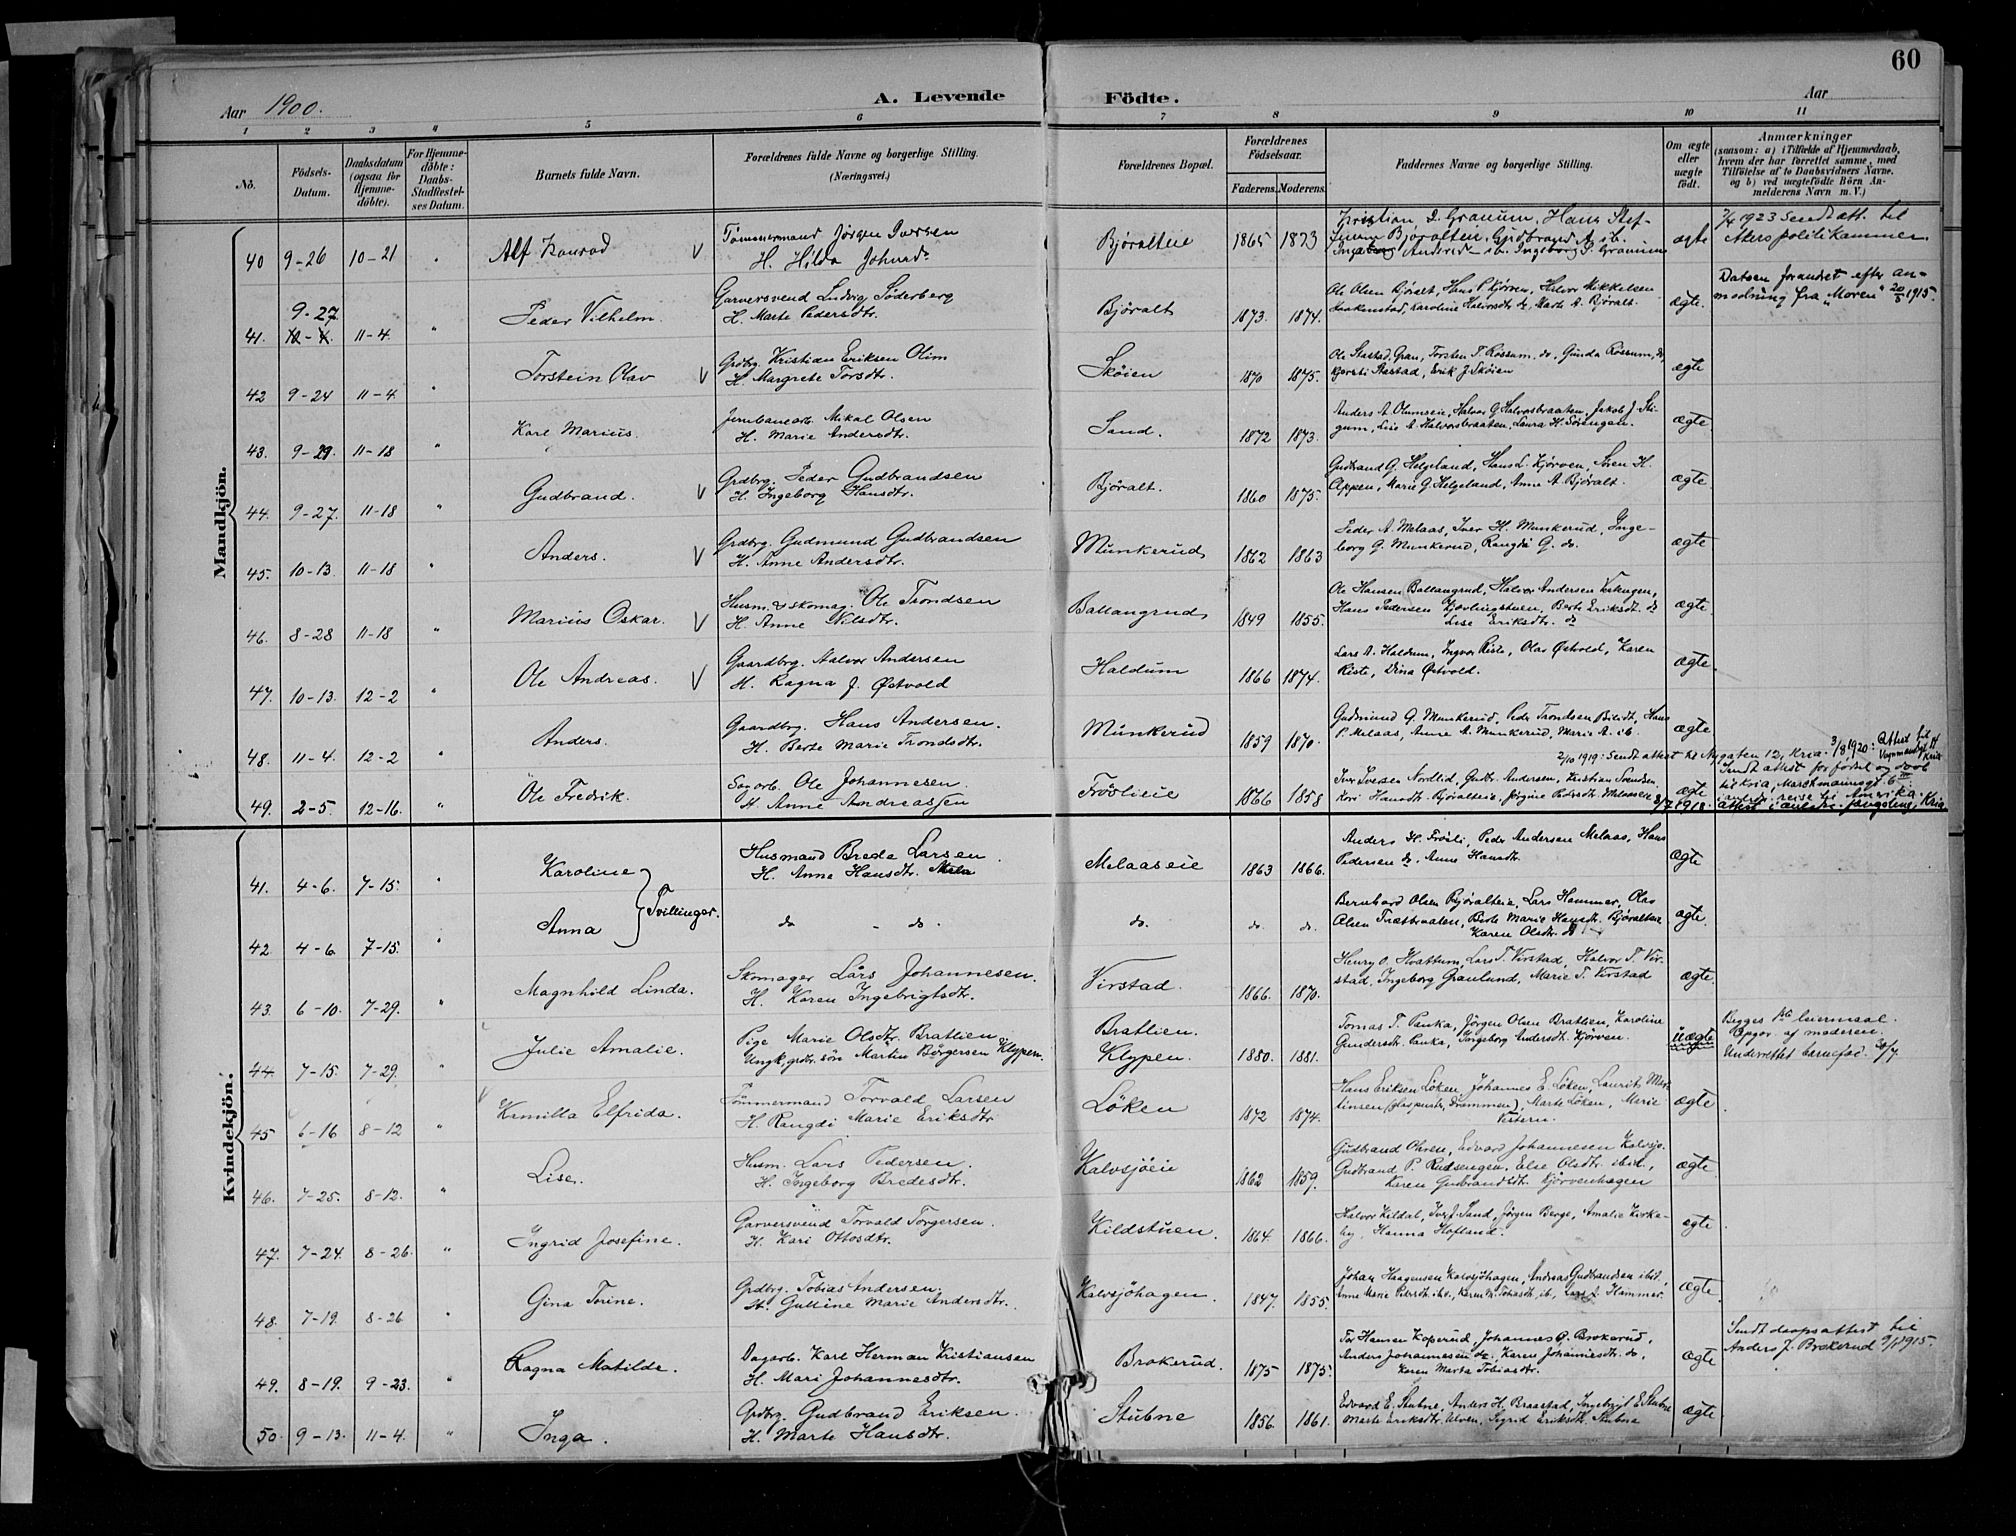 60
Aar 1900. A. Levende Födte. Aar
1 2 3 4 5 6 7 8 9 10 11
No. Födsels-Datum. Daabsdatum (ogsaa for Hjemmedöbte). For Hjemmedöbte: Daabs-Stadfæstelses Datum. Barnets fulde Navn. Forældrenes fulde Navne og borgerlige Stilling. (Næringsvei.) Forældrenes Bopæl. Forældrenes Födselsaar. Faderens. Moderens. Faddernes Navne og borgerlige Stilling. Om ægte eller uægte födt. Anmærkninger (saasom: a) i Tilfælde af Hjemmedaab, hvem der har forrettet samme, med Tilföielse af to Daabsvidners Navne, og b) ved uægtefödte Börn Anmelderens Navn m. V.)
Mandkjön.
40 9-26 10-21 " Alf Konrad V Tømmermand Jörgen Iversen
H. Hilda Johnsdr Björalteie 1865 1873 Kristian D. Granum, Hans Stef-
Björalteie, Gudbrand A. ib.
Ingeborg S. Granum ægte 7/4 1923 Sendt att. til
Akers politikammer
41. 9-27 12-4. 11-4. " Peder Vilhelm. Garversvend Ludvig Söderberg
H. Marte Pedersdtr. Björalt 1873. 1874. Ole Olsen Björalt, Hans P. Kjörven, Helvor Mikkelsen
Haakenstad, Karoline Halvorsdtr do, Marte A. Björalt. ægte. Datoen forandret efter an-
modning fra "Moren" 20/5 1915.
42 9-24 11-4 " Torstein Olav V Grdbrg. Kristian Eriksen Olim
H. Margrete Torsdtr. Sköien 1870 1875. Ole Stastad, Gran, Torsten T. Rossum, do, Gunda Rossum, do
Kjersti Stastad, Erik J. Sköien ægte
43. 9-29 11-18 " Karl Marius. Jernbanearb. Mikal Olsen
H. Marie Andersdtr. Sand. 1872 1873. Anders A. Olumseie, Halvor G. Halvorsbraaten, Jakob J. Sti-
gum, Lise A. Halvorsbraaten, Laura H. Sörengen. ægte
44. 9-27. 11-18 " Gudbrand. V Grdbrg. Peder Gudbrandsen
H. Ingeborg Hansdtr. Björalt. 1860 1875. Gudbrand G. Helgeland, Hans L. Kjörven, Sören H.
Oppen, Marie G. Helgeland, Anne A. Björalt. ægte
45. 10-13. 11-18 " Anders. V Grdbrg. Gudmund Gudbrandsen
H. Anne Andersdtr. Munkerud 1862 1863 Peder A. Melaas, Iver H. Munkerud, Inge-
borg G. Munkerud, Rangdi G. do. ægte
46. 8-28 11-18 " Marius Oskar. V Husm. & skomag. Ole Trondsen
H. Anne Nilsdtr. Ballangrud 1849 1855. Ole Hansen Ballangrud, Halvor Andersen
Hans Pedersen Kjörlingstuen, Berte Eriksdt. do
Lise Eriksdtr. do ægte.
47. 10-13. 12-2 " Ole Andreas. V Gaardbrg. Halvor Andersen
H. Ragna J. Østvold Haldum 1866 1874. Lars A. Haldum, Ingvor Riste, Olav Østvold, Karen
Riste, Dina Østvold. ægte.
48. 11-4. 12-2 " Anders. Gaardbrg. Hans Andersen.
H. Berte Marie Trondsdtr. Munkerud 1859 1870. Gudmund G. Munkerud, Peder Trondsen Bilidt, Hans
P. Melaas, Anne A. Munkerud, Marie A. ib. ægte
2/10 1919: Sendt attest til Nygaten 12, Kria. 3/8 1920: Attest til
49. 2-5. 12-16. " Ole Fredrik. Sagarb. Ole Johannesen.
H. Anne Andreassen Fröslieie 1866 1858 Iver Iversen Nordlid, Gudbr. Andersen, Kristian Svendsen
Kari Hansdtr Björalteie, Jörgine Pedersdt. Melaaseie ægte Sendt attest for födsel og daab
til Kria
reise til Amerika.
8/7 1918.
Kvindekjön.
41. 4-6. 7-15. " Karoline Tvillinger. Husmand Brede Larsen
H. Anne Hansdtr. Melaaseie 1863 1866. Anders H. Frösli, Peder Andersen Melaas, Hans
Pedersen do. Anne Hansdtr. ægte
42. 4-6. 7-15. " Anna do - do. do. do. do. Bernhard Olsen Björalteie, Lars Hammer, Olav
Olsen Trætbraaten, Berte Marie Hansdtr. Björalteie
Karen Olsdtr. do ægte.
43. 6-10. 7-29. " Magnhild Linda. Skomager Lars Johannesen.
H. Karen Ingebrigtsdtr. Virstad. 1866. 1870. Henry O. Hvattum, Lars T. Virstad, Halvor T. Vir-
stad, Ingeborg Granlund, Marie T. Virstad ægte.
44. 7-15. 7-29. " Julie Amalie. Pige Marie Olsdtr. Bratlien
Ungk. grdr. sön Martin Börgersen Klypen. Bratlien.
Klypen. 1880. 1881. Tomas T. Panka, Jörgen Olsen Bratlien, Karoline
Gundersdtr. Panka, Ingeborg Andersdt. Kjörven. uægte Begges 1ste leiermaal.
Opgav. af moderen.
Underrettet barnefad. 30/7.
45 6-16 8-12 " Krnilla Elfrida. Tömmermand Torvald Larsen
H. Rangdi Marie Eriksdtr Löken 1872 1874. Hans Eriksen Löken, Johannes E. Löken, Laurits Mar-
tinsen (Glaspuster, Drammen), Marte Löken, Marie
Vestern. ægte
46. 7-25. 8-12. " Lise. Husm. Lars Pedersen.
H. Ingeborg Bredesdtr. Kalvsjöeie 1862 1859. Gudbrand Ohren, Edvard Johannesen Kalvsjö.
Gudbrand P. Rudsengen, Else Olsdtr. ibid.,
Karen Gudbrandsdtr. Kjörvenhagen ægte
47. 7-24. 8-26. " Ingrid Josefine. Garversvend Torvald Torgersen.
H. Kari Ottosdtr. Kildstuen. 1864. 1866. Halvor Kildal, Iver J. Sand, Jörgen Berge, Amalie Kirke-
by, Hanna Hofland. ægte
48. 7-19. 8-26 " Gina Torine. Grdbrg. Tobias Andersen,
H. Gulline Marie Andersdtr. Kalvsjöhagen. 1847. 1855. Johan Haagensen Kalvsjöhagen, Andreas Gudbrandsen ibid.,
Anne Marie Petersdt ibid., Karen M. Tobiasdt. ib., Lars A. Hammer. ægte
49. 8-19. 9-23. " Ragna Matilde. Dagarb. Karl Herman Kristiansen
H. Mari Johannesdtr. Brokerud. 1875 1875. Tor Hansen Koperud, Johannes P. Brokerud,
Anders Johannesen do. Karen Johannesdt. do,
Karen Marta Tobiasdtr. ægte Sendt daapsattest til
Anders J. Brokerud 9/1 1915.
50. 9-13. 11-4. " Inga. Grdbrg. Gudbrand Eriksen.
H. Marte Hansdtr. Stubne 1856. 1861. Edvard E. Stubne, Anders H. Braastad, Ingebrigt E. Stubne
Marte Eriksdtr. Ulven, Sigrid Eriksdt. Stubne ægte